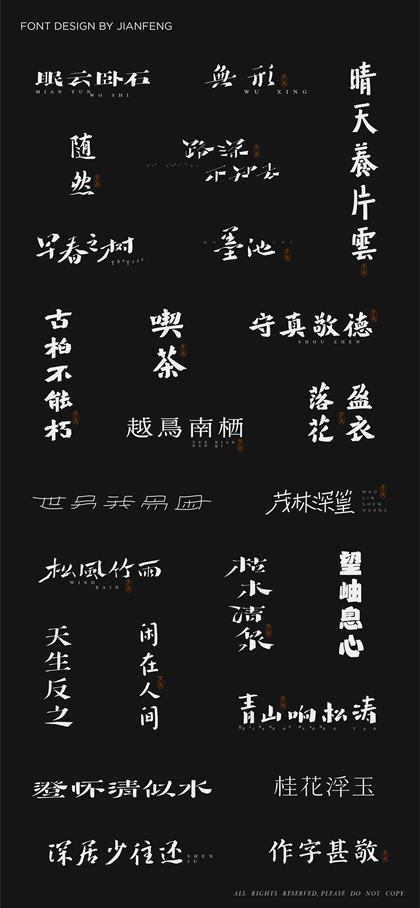 FONT DESIGN BY JIANFENG
眠云卧石
MIAN YUN
WO SHI
無形
WU XING
晴天養片雲
随然
路深
不知去
早春之树
墨池
古柏不能朽
喫茶
守真敬德
SHOU ZHEN
落花
盈衣
越鳥南栖
YUE NIAO
NAN QI
茂林深篁
MAO
LIN
SHEN
HUANG
松風竹雨
WIND
RAIN
枯木清泉
望岫息心
天生反之
闲在人间
青山响松涛
澄怀清似水
桂花浮玉
深居少往还
SHEN
JU
作字甚敬
ALL RIGHTS RESERVED, PLEASE DO NOT COPY.